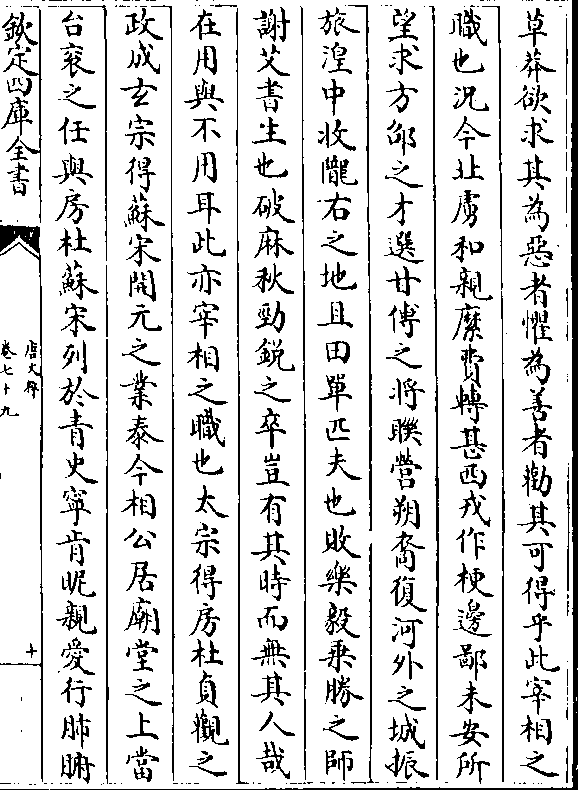 草莽欲求其為惡者懼為善者勸其可得乎此宰相之
職也況今北虜和親縻費轉甚西戎作梗邊鄙未安所
望求方邵之才選甘傅之將聯營朔裔復河外之城振
旅湟中收隴右之地且田單匹夫也敗樂毅乗勝之師
謝艾書生也破麻秋勁鋭之卒豈有其時而無其人哉
在用與不用耳此亦宰相之職也太宗得房杜貞觀之
政成玄宗得蘇宋開元之業泰今相公居廟堂之上當
台衮之任與房杜蘇宋列於青史寧肯昵親愛行肺腑
欽定四庫全書
唐文粹
卷七十九
十